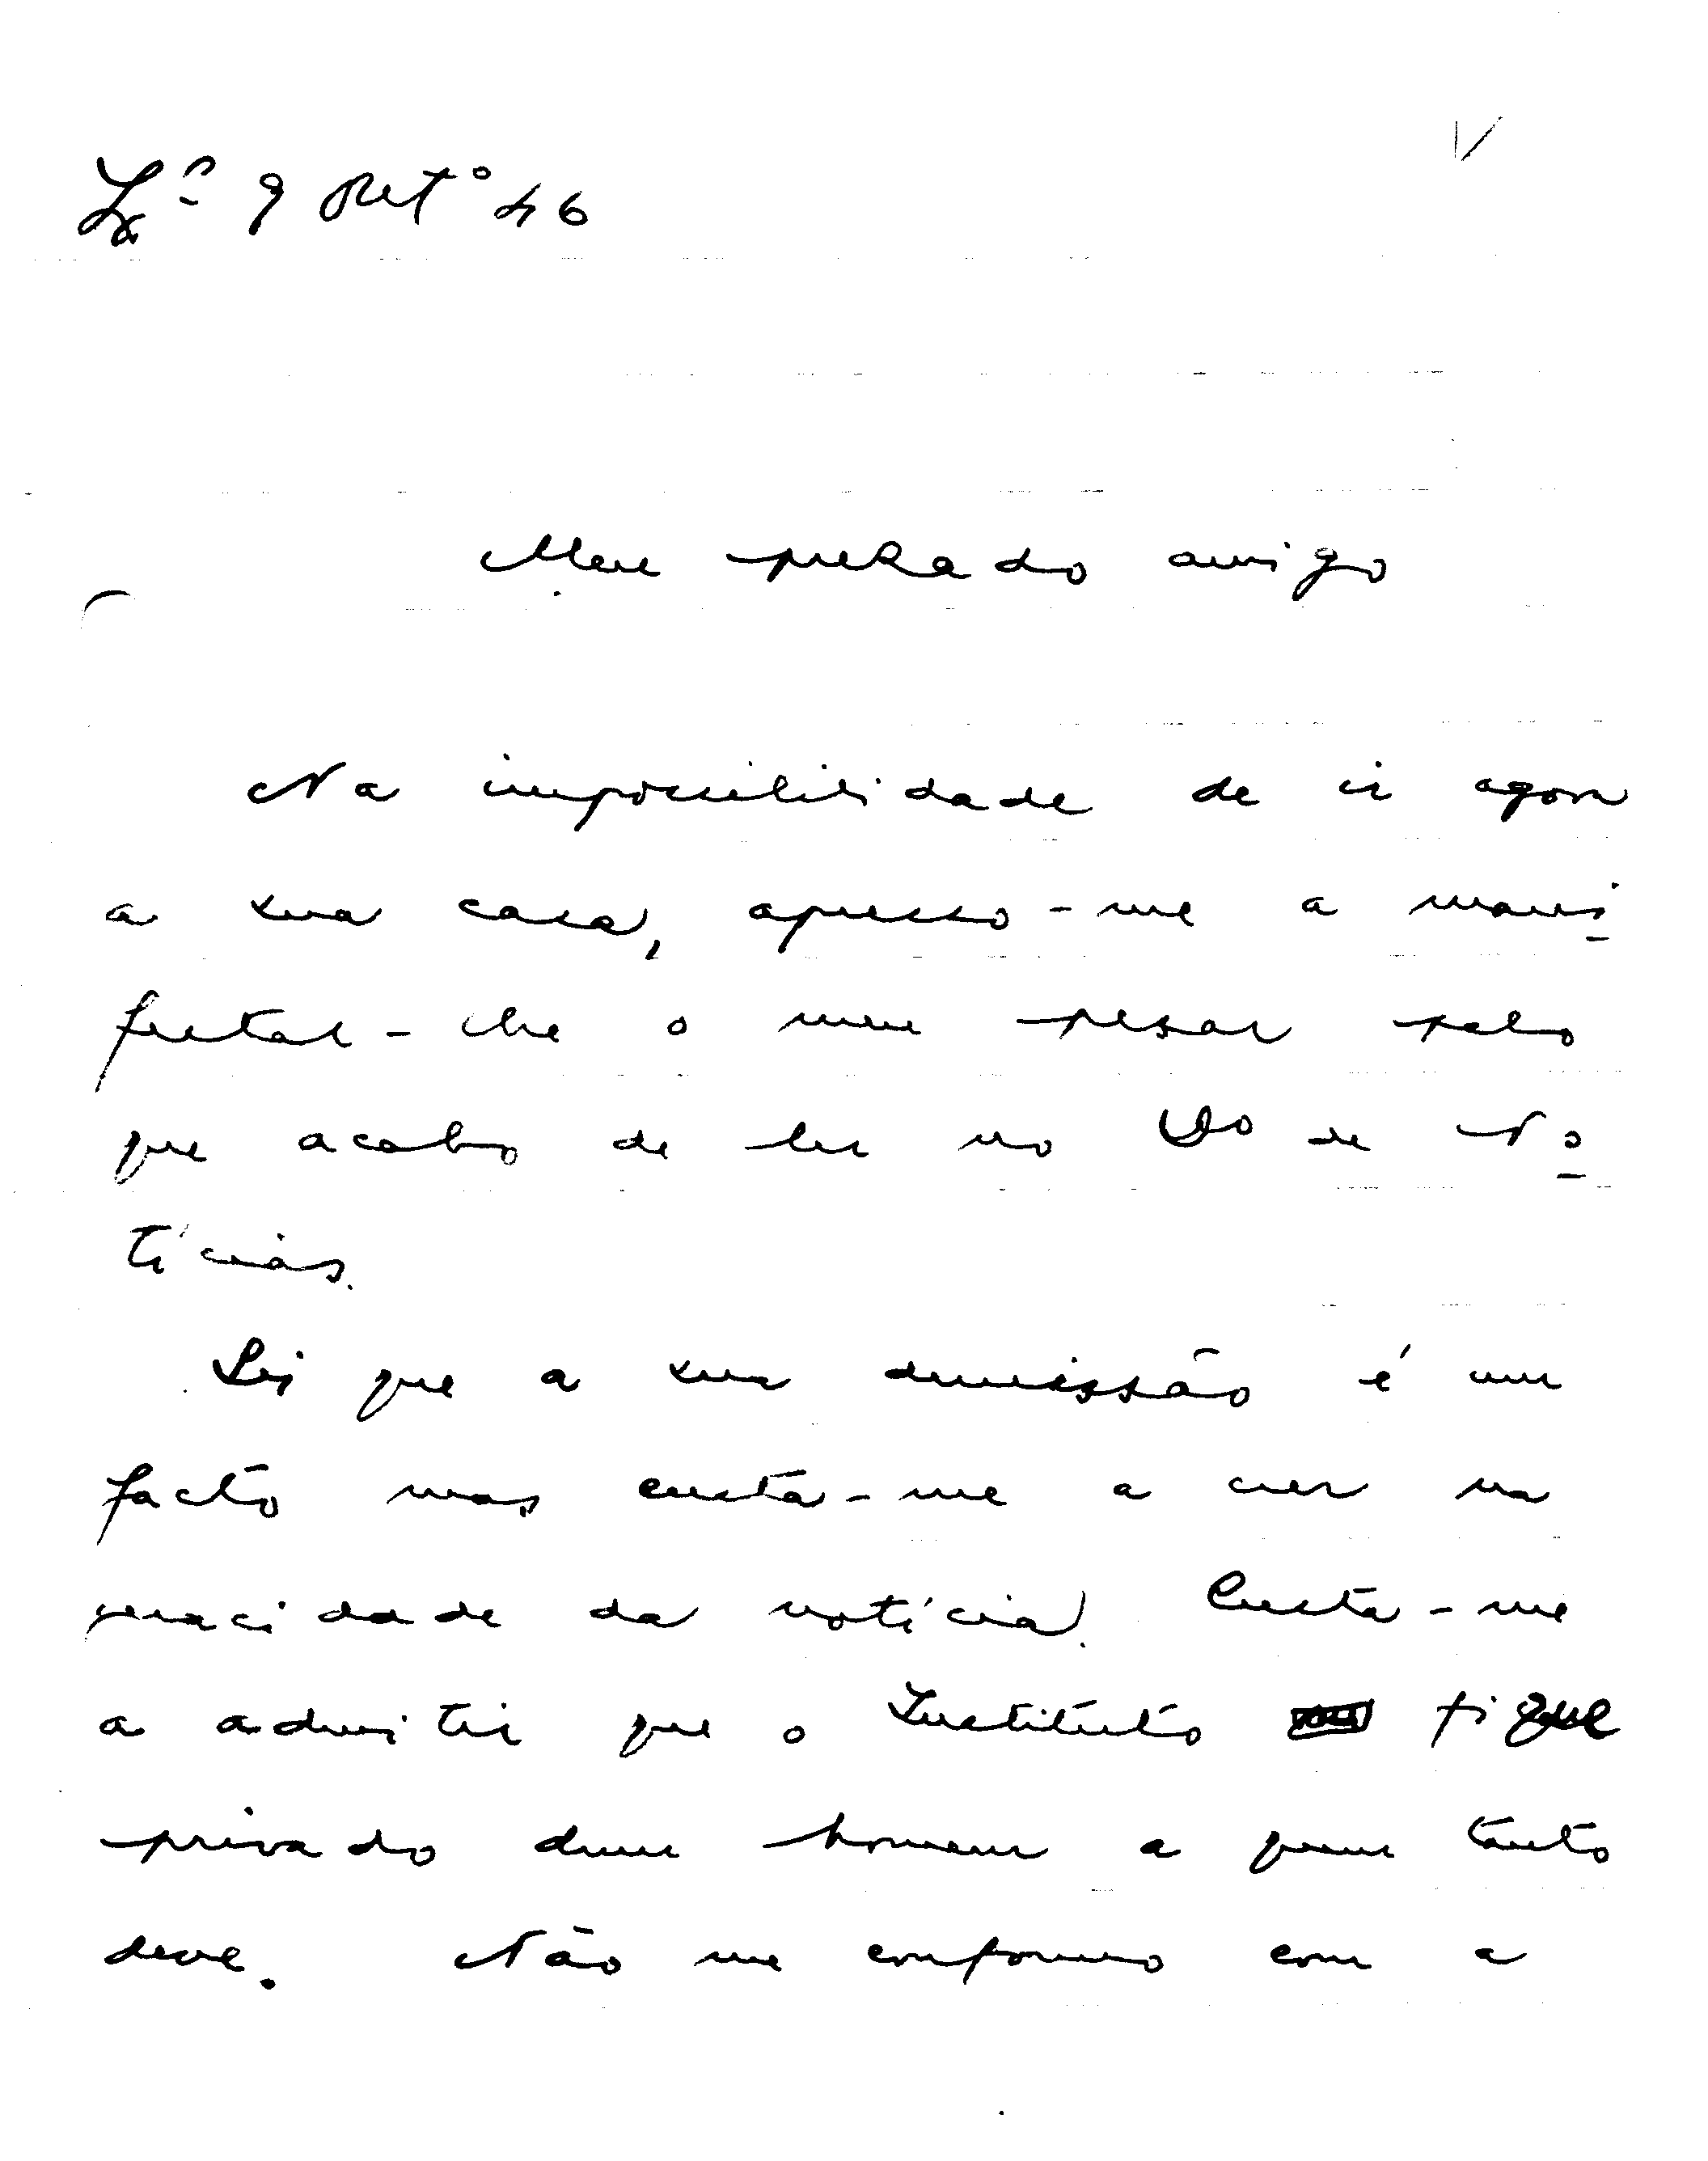 Lxª 9 Outº 46
Meu prezado amigo
Na impossibilidade de ir agora
a sua casa, apresso-me a mani
festar-lhe o meu pesar pelo
que acabo de ler no Dº de No
tícias.
Sei que a sua demissão é um
facto mas custa-me a crer na
veracidade da notícia. Custa-me
a admitir que o Instituto fique
privado dum homem a quem tanto
deve. Não me conformo com a